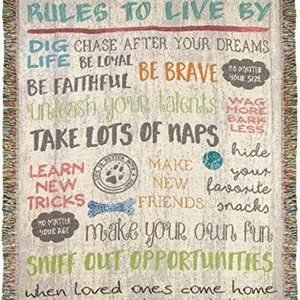 RULES TO LIVE BY
DIG LIFE
CHASE AFTER YOUR DREAMS
BE LOYAL
BE FAITHFUL
BE BRAVE
NO MATTER
YOUR SIZE
unleash your talents
WAG
MORE
BARK
LESS
TAKE LOTS OF NAPS
LEARN
NEW
TRICKS
MAKE
NEW
FRIENDS
hide
your
favorite
snacks
NO MATTER
YOUR AGE
make your own fun
SNIFF OUT OPPORTUNITIES
when loved ones come home